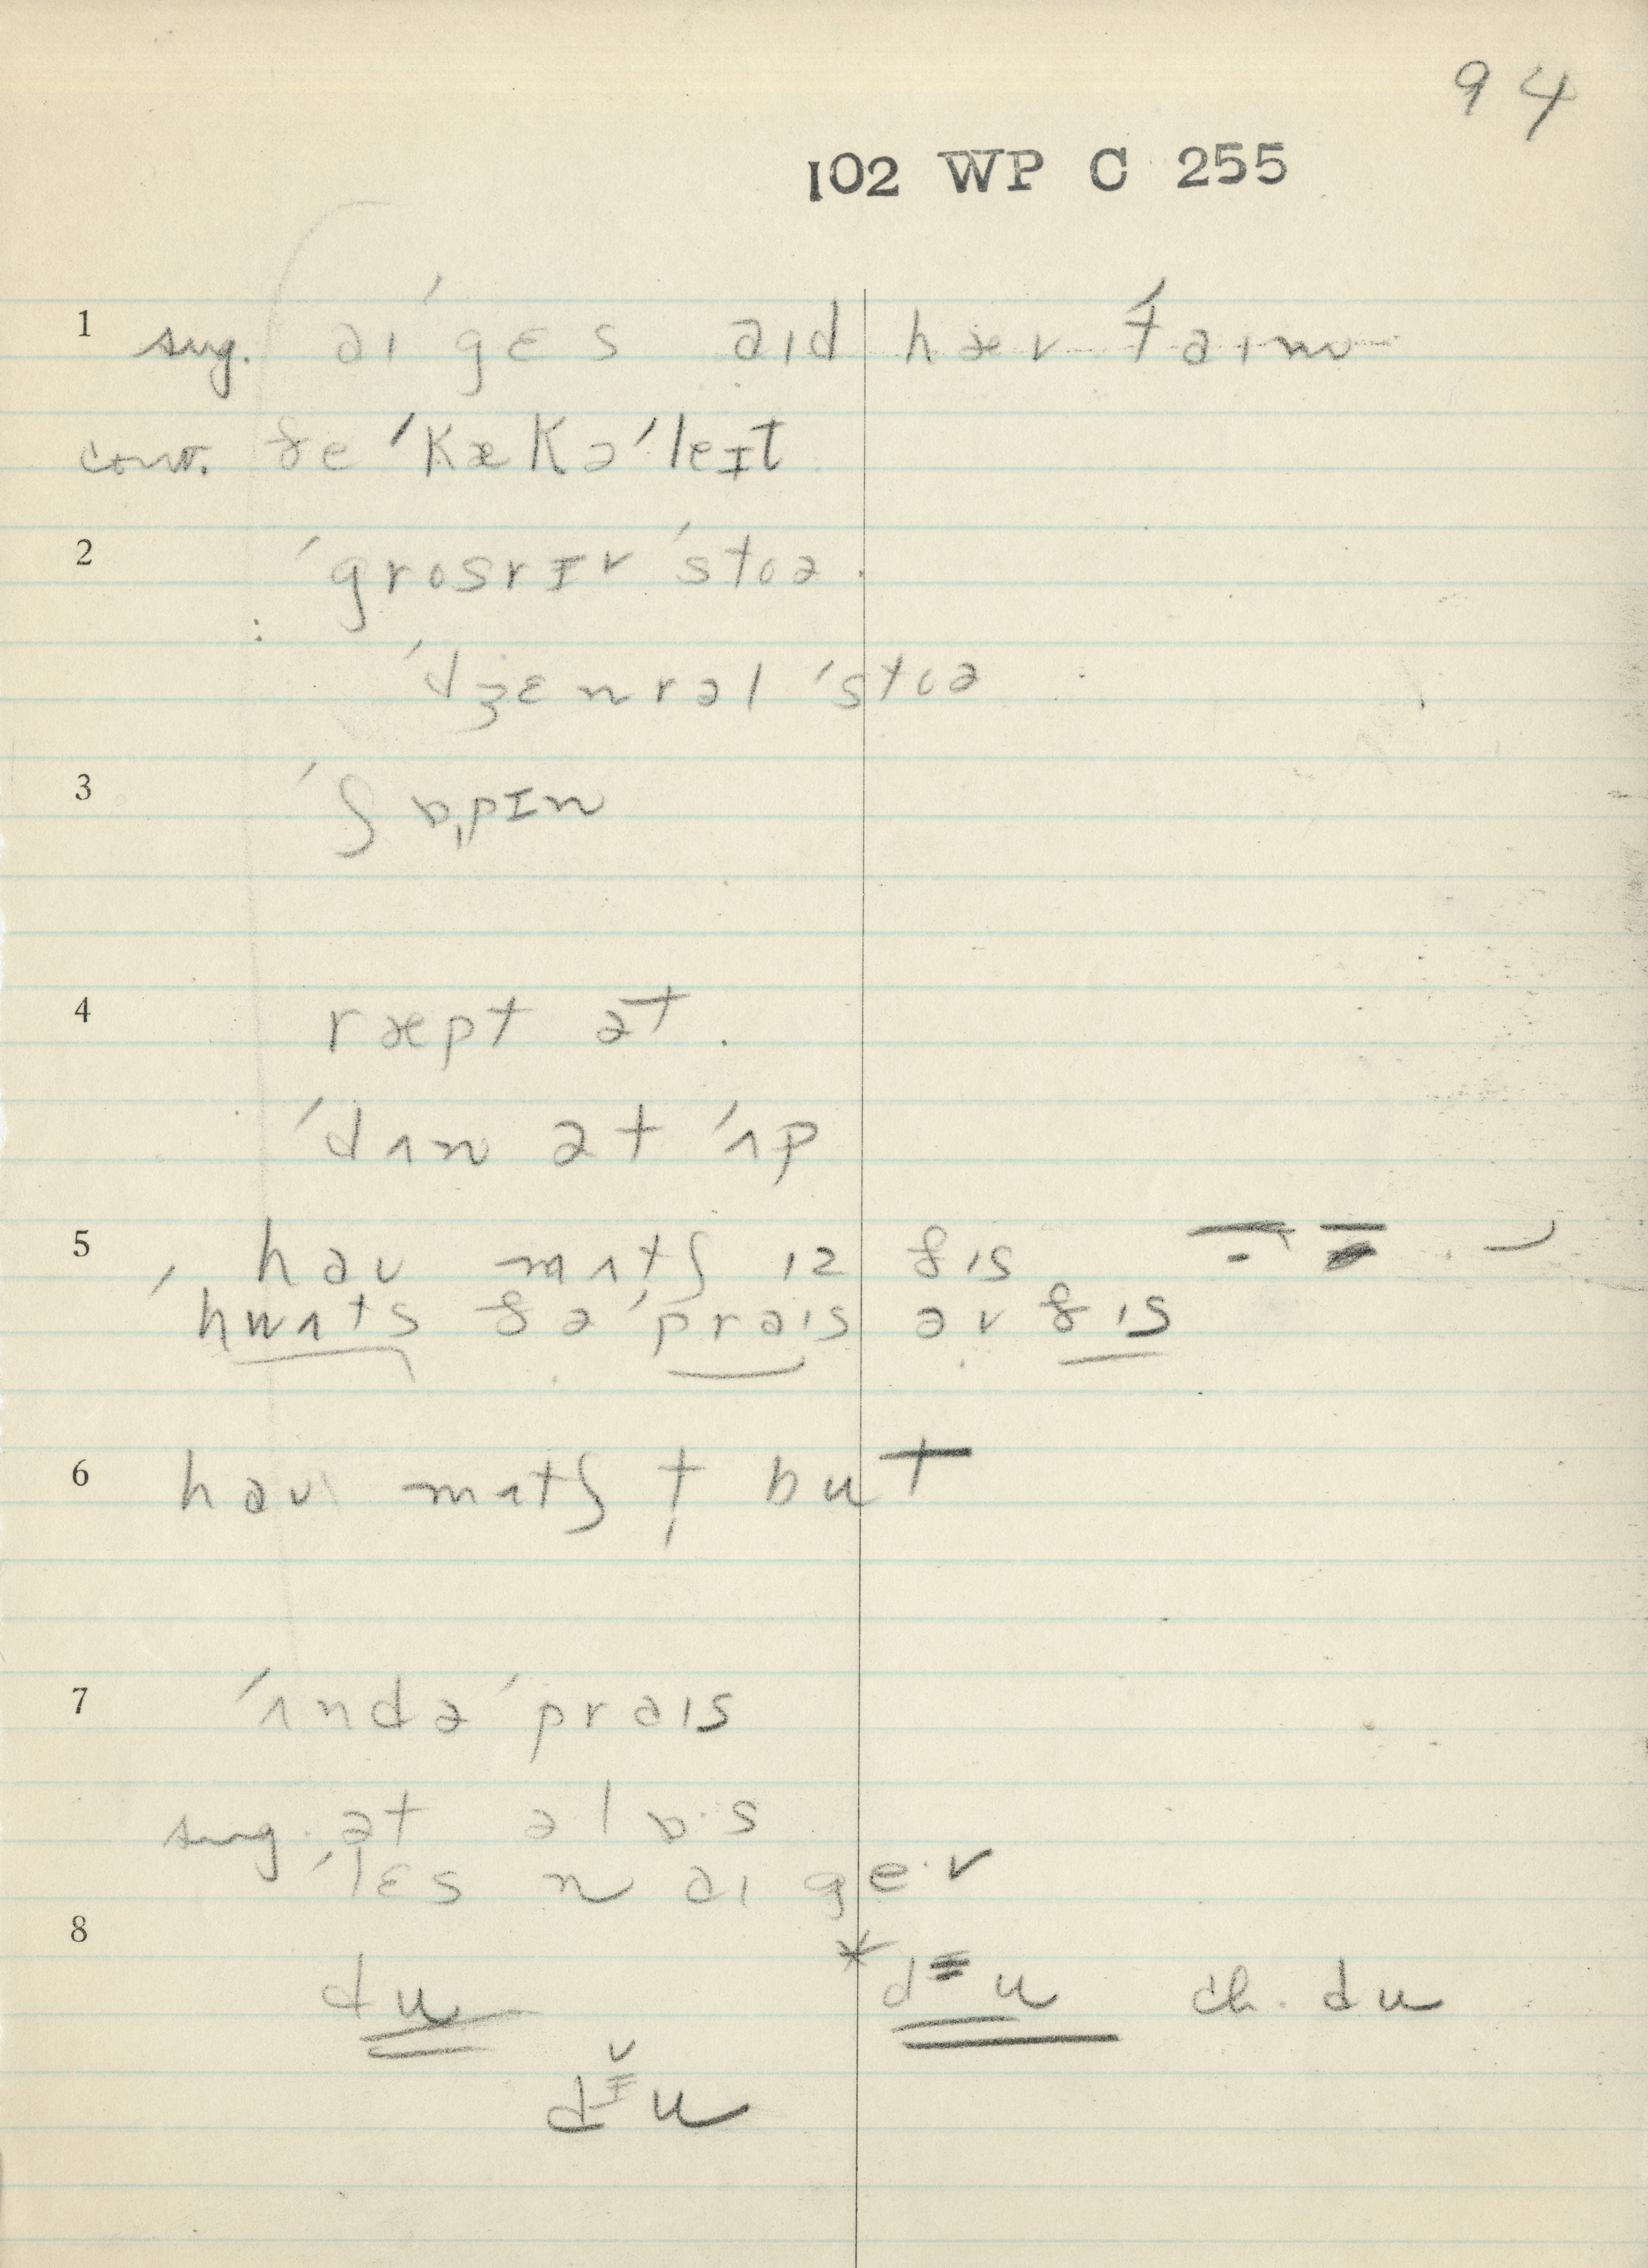 94
102 WP C 255
1 sug. aɪ ˈgɛs aɪd hæv ˈtaɪm
conv. ðe ˈkækəˈleɪt
2 ˈgrosrɪv ˈstoə
ˈdʒɛnrəl ˈstoə
3 ˈʃɒˌpɪn
4 ræpt ət
ˈdʌn ət ˈʌp
5 haʊ mʌtʃ ɪz ðɪs
ˈhwʌts ðə ˈpraɪs əv ðɪs
6 haʊ mʌtʃ t but
7 ˈʌndəˈpraɪs
sug. ət ə lɒ·s
ˈlɛs n aɪ ge·v
8
du *dɪu ch. du
dɪ̆u